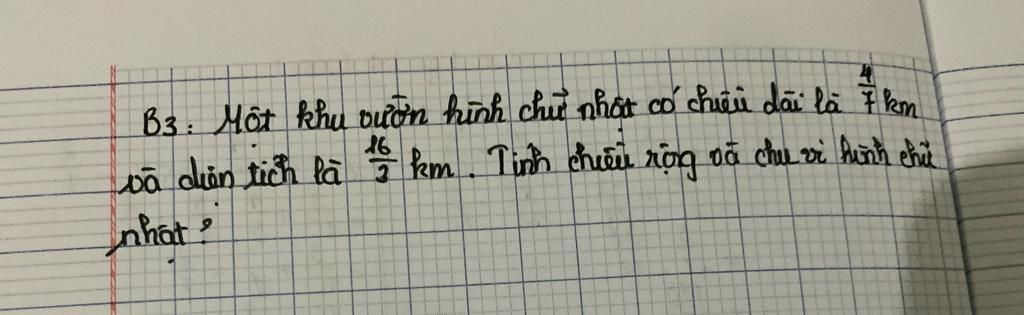 B3: Một khu vườn hình chữ nhật có chiều dài là 4/7 km
và diện tích là 16/3 km. Tính chiều rộng và chu vi hình chữ
nhật?